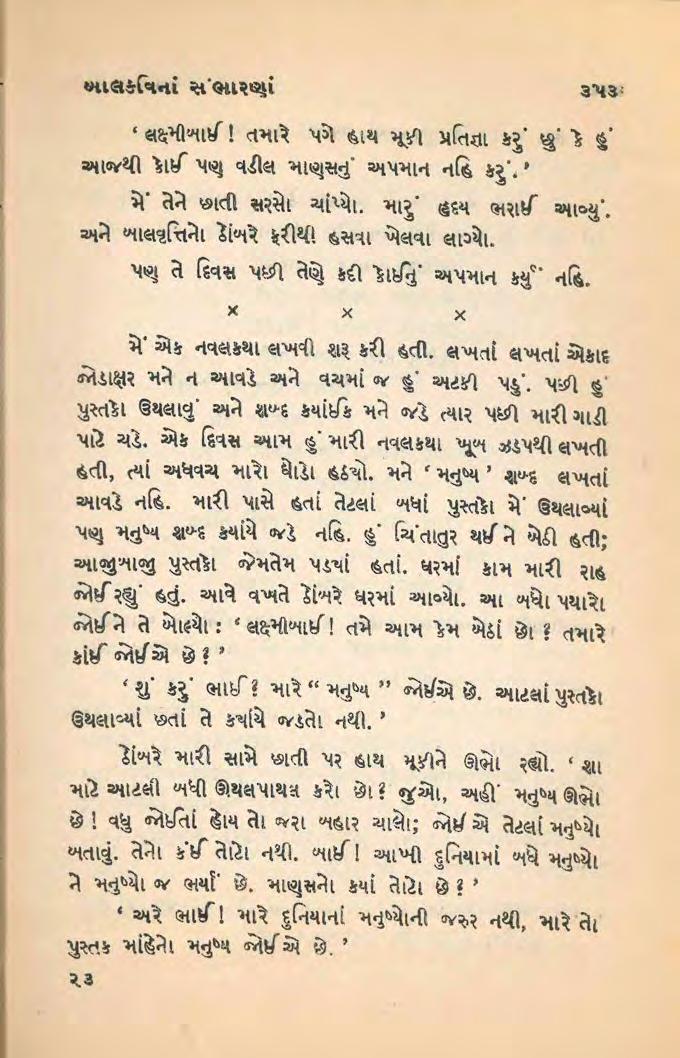 બાલકવિનાં સંભારણાં ૩૫૩
‘ લક્ષ્મીબાઈ ! તમારે પગે હાથ મૂકી પ્રતિજ્ઞા કરું છું કે હું
આજથી કોઈ પણ વડીલ માણસનું અપમાન નહિ કરું.’
મેં તેને છાતી સરસો ચાંપ્યો. મારું હૃદય ભરાઈ આવ્યું.
અને બાલવૃત્તિનો ઠોંબરે ફરીથી હસવા ખેલવા લાગ્યો.
પણ તે દિવસ પછી તેણે કદી કોઈનું અપમાન કર્યું નહિ.
× × ×
મેં એક નવલકથા લખવી શરૂ કરી હતી. લખતાં લખતાં એકાદ
જોડાક્ષર મને ન આવડે અને વચમાં જ હું અટકી પડું. પછી હું
પુસ્તકો ઉથલાવું અને શબ્દ કયાંઈક મને જડે ત્યાર પછી મારી ગાડી
પાટે ચડે. એક દિવસ આમ હું મારી નવલકથા ખૂબ ઝડપથી લખતી
હતી, ત્યાં અધવચ મારો ઘોડો હઠયો. મને ‘ મનુષ્ય ’ શબ્દ લખતાં
આવડે નહિ. મારી પાસે હતાં તેટલાં બધાં પુસ્તકો મેં ઉથલાવ્યાં
પણ મનુષ્ય શબ્દ કયાંયે જડે નહિ. હું ચિંતાતુર થઈ ને બેઠી હતી;
આજુબાજુ પુસ્તકો જેમતેમ પડયાં હતાં. ઘરમાં કામ મારી રાહ
જોઈ રહ્યું હતું. આવે વખતે ઠોંબરે ઘરમાં આવ્યો. આ બધો પથારો
જોઈને તે બોલ્યો : ‘ લક્ષ્મીબાઈ ! તમે આમ કેમ બેઠાં છો ? તમારે
કાંઈ જોઈએ છે ? ’
‘ શું કરું ભાઈ ? મારે “ મનુષ્ય ” જોઈએ છે. આટલાં પુસ્તકો
ઉથલાવ્યાં છતાં તે કયાંયે જડતો નથી. ’
ઠોંબરે મારી સામે છાતી પર હાથ મૂકીને ઊભો રહ્યો. ‘ શા
માટે આટલી બધી ઊથલપાથલ કરો છો ? જુઓ, અહીં મનુષ્ય ઊભો
છે ! વધુ જોઈતાં હોય તો જરા બહાર ચાલો; જોઈ એ તેટલાં મનુષ્યો
બતાવું. તેનો કંઈ તોટો નથી. બાઈ ! આખી દુનિયામાં બધે મનુષ્યો
ને મનુષ્યો જ ભર્યાં છે. માણસનો કયાં તોટો છે ? ’
‘ અરે ભાઈ ! મારે દુનિયાનાં મનુષ્યોની જરુર નથી, મારે તો
પુસ્તક માંહેનો મનુષ્ય જોઈ એ છે. ’
૨૩